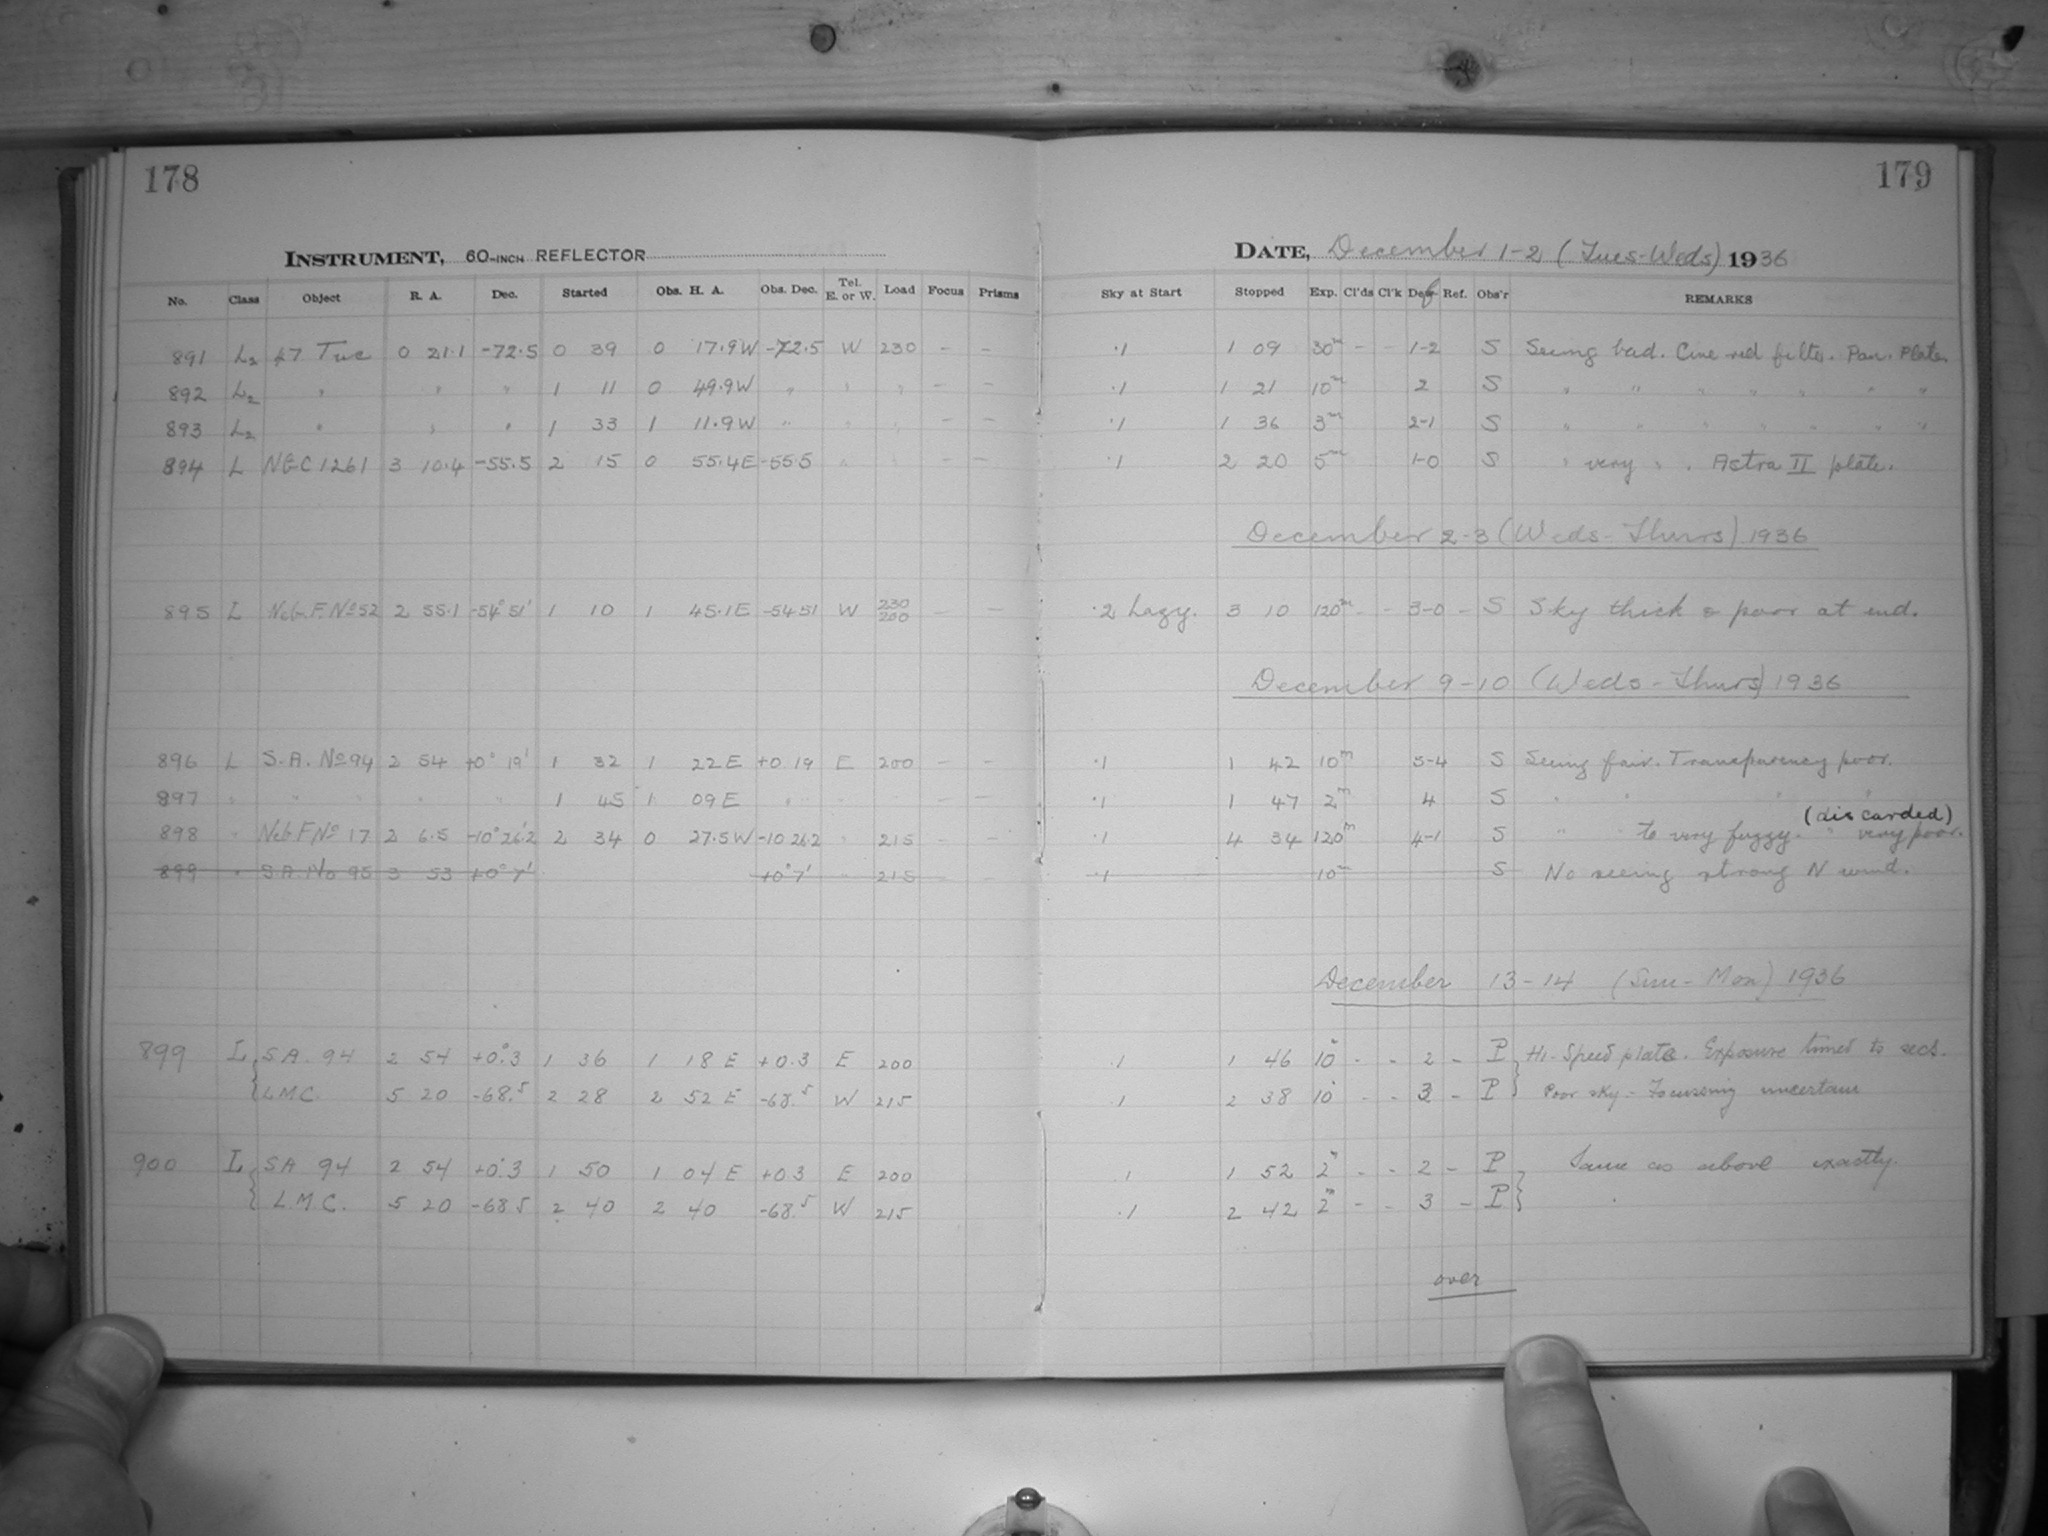 178
179
INSTRUMENT, 60-INCH REFLECTOR
DATE, December 1-2 (Tues-Weds) 1936
No. Class Object R. A. Dec. Started Obs. H. A. Obs. Dec. Tel. E. or W. Load Focus Prisms Sky at Start Stopped Exp. Cl'ds Cl'k Def Ref. Obs'r REMARKS
891 L2 47 Tuc 0 21.1 -72.5 0 39 0 17.9W -72.5 W 230 - - .1 1 09 30m - - 1-2 S Seeing bad. Cine red filter. Pan. Plate
892 L2 " " " 1 11 0 49.9W " " " - - .1 1 21 10m 2 S " " " " " " "
893 L2 " " " 1 33 1 11.9W " " " - - .1 1 36 3m 2-1 S " " " " " " "
894 L NGC 1261 3 10.4 -55.5 2 15 0 55.4E -55.5 " " - - .1 2 20 5m 1-0 S " very " . Astra II plate.
December 2-3 (Weds-Thurs) 1936
895 L Neb. F. No 52 2 55.1 -54° 51' 1 10 1 45.1E -54 51 W 230 200 - - .2 hazy. 3 10 120m - - 3-0 - S Sky thick & poor at end.
December 9-10 (Weds-Thurs) 1936
896 L S.A. No 94 2 54 +0° 19' 1 32 1 22E +0 19 E 200 - - .1 1 42 10m 3-4 S Seeing fair. Transparency poor.
897 " " " " " 1 45 1 09E " " - - .1 1 47 2m 4 S " " " "
(discarded)
898 " Neb F No 17 2 6.5 -10° 26.2' 2 34 0 27.5W -10 26.2 " 215 - - .1 4 34 120m 4-1 S " " to very fuzzy. " very poor.
899 " S.A. No 95 3 53 +0° 7' +0° 7' " 215 - - .1 10m S No seeing strong N wind.
December 13-14 (Sun-Mon) 1936
899 L { S A 94 2 54 +0.°3 1 36 1 18 E +0.3 E 200 .1 1 46 10m - - 2 - P } Hi-Speed plate. Exposure timed to secs.
L.M.C. 5 20 -68.5 2 28 2 52 E -68.5 W 215 .1 2 38 10 - - 3 - P Poor sky - Focussing uncertain
900 L { S A 94 2 54 +0.°3 1 50 1 04 E +0.3 E 200 .1 1 52 2m - - 2 - P } Same as above exactly.
L.M.C. 5 20 -68.5 2 40 2 40 -68.5 W 215 .1 2 42 2m - - 3 - P
over